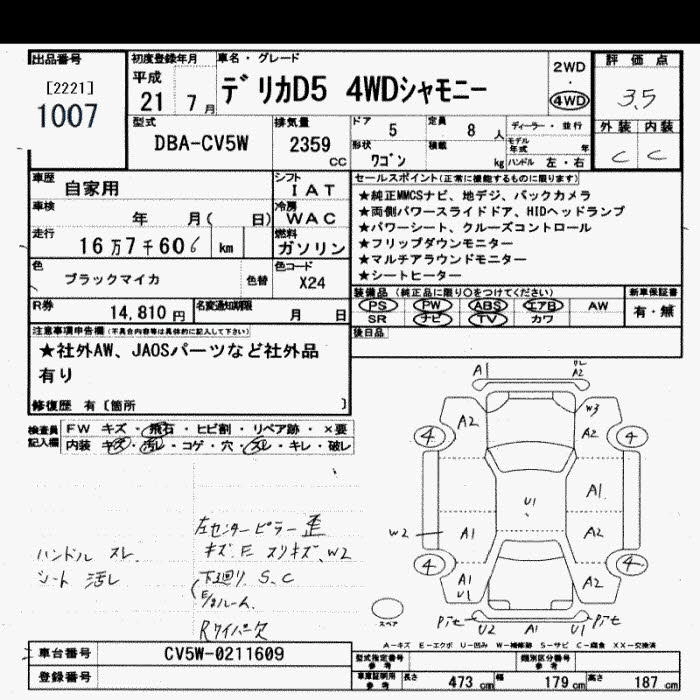 出品番号
[2221]
1007
初度登録年月
平成
21 7月
車名・グレード
デリカD5 4WDシャモニー
2WD
・
4WD
評価点
3.5
外装 内装
C C
型式
DBA-CV5W
排気量
2359
cc
ドア
5
定員
8 人
形状
ワゴン
積載
kg
ディーラー・並行
モデル年式 年
ハンドル 左・右
車歴
自家用
シフト
IAT
車検
年 月( 日)
冷房
WAC
走行
16万7千606 km
燃料
ガソリン
色
ブラックマイカ
色替
色コード
X24
R券
14,810 円
名変通知期限
月 日
セールスポイント(正常に機能するものに限ります)
★純正MMCSナビ、地デジ、バックカメラ
★両側パワースライドドア、HIDヘッドランプ
★パワーシート、クルーズコントロール
★フリップダウンモニター
★マルチアラウンドモニター
★シートヒーター
装備品(純正品に限り○をつけてください)
PS PW ABS エアB AW
SR ナビ TV カワ
新車保証書
有・無
後日品
注意事項申告欄(不具合内容等は具体的に記入して下さい)
★社外AW、JAOSパーツなど社外品
有り
修復歴 有〔箇所 〕
検査員
記入欄
FW キズ・飛石・ヒビ割・リペア跡・×要
内装 キズ・汚レ・コゲ・穴・スレ・キレ・破レ
ハンドル スレ
シート 汚レ
左センターピラー歪
キズ、E スリキズ、W2
下廻り S、C
E/gルーム
Rワイパー欠
A1
A2
A2
W3
A2
4
4
U1
A1
W2
A1
A2
4
4
A1
U1
A2
スペア
U2 A1 U1
A−キズ E−エクボ U−凹み W−補修跡 S−サビ C−腐食 XX−交換済
車台番号
CV5W-0211609
登録番号
型式指定番号
参考
類別区分番号
参考
車庫証明用
参考
長さ 473 cm 幅 179 cm 高さ 187 cm